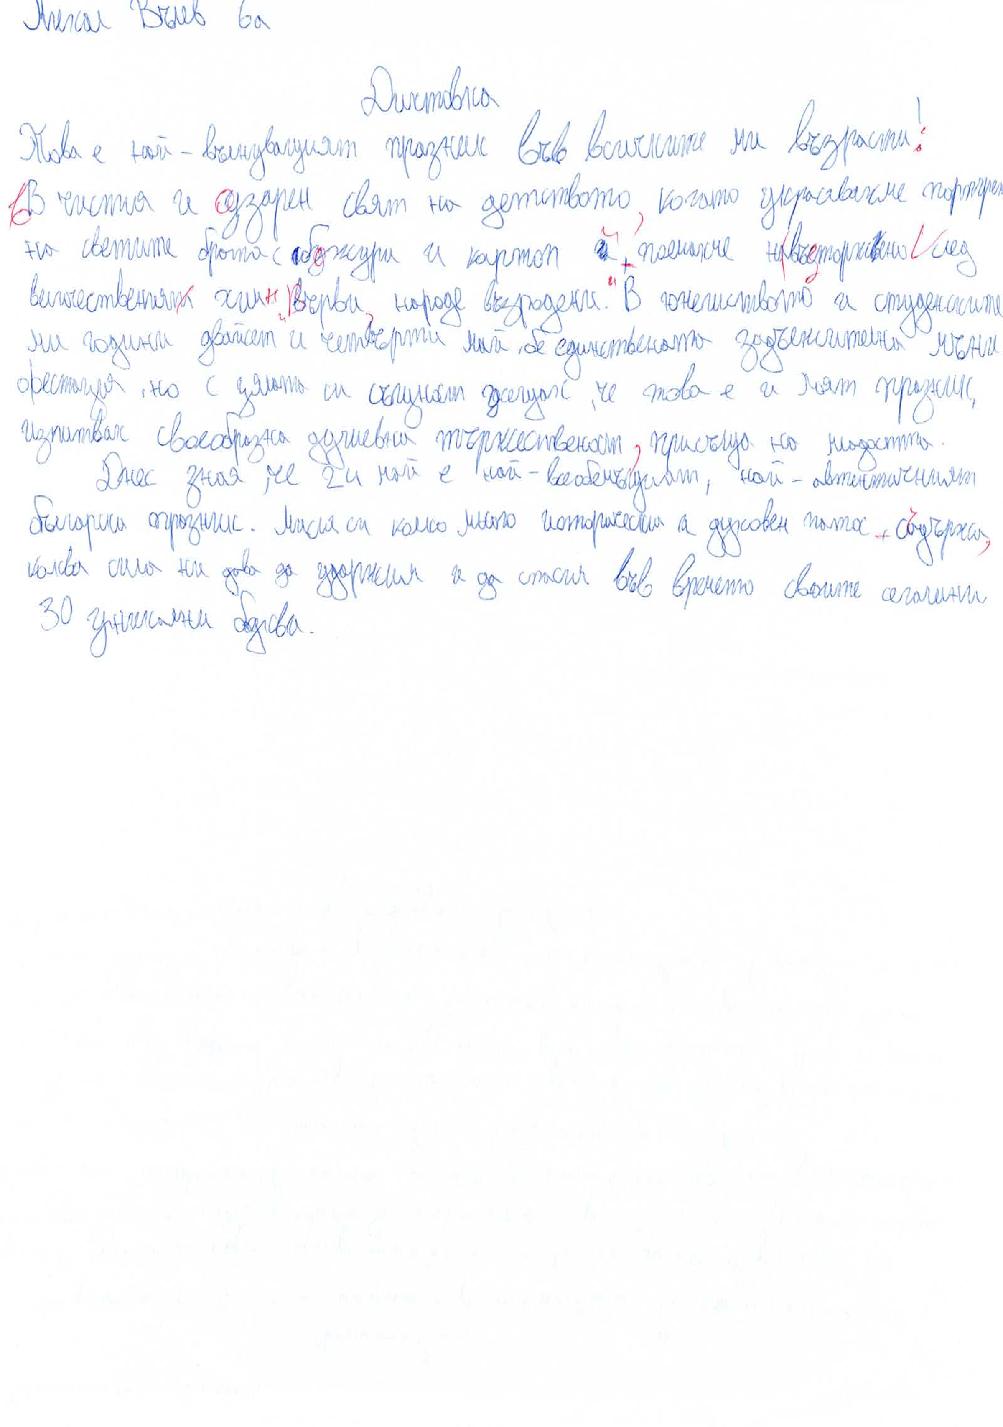 Вълев 6а
Диктовка
Това е най-вълнуващият празник във всичките ми възрасти!
В чистия и озарен свят на детството, когато украсявахме портрет
на светите братя с божури и картон и поехме невъзторжено след
величествения химн „Върви, народе възродени." В юношеството и студенските
ми години двайсет и четвърти май бе единствената задължителна мъни
фестация, но с цялата си същност долудях, че това е и моят празник,
изпитвах своеобразна душевна тържественост, присъща на младостта.
Днес зная, че 24 май е най-всеобемъщият, най-автентичният
български празник. Мисля си колко много исторически и духовен патос съдържа,
каква сила ни дава да удържим и да стоим във времето своите сегашни
30 уникални букви.